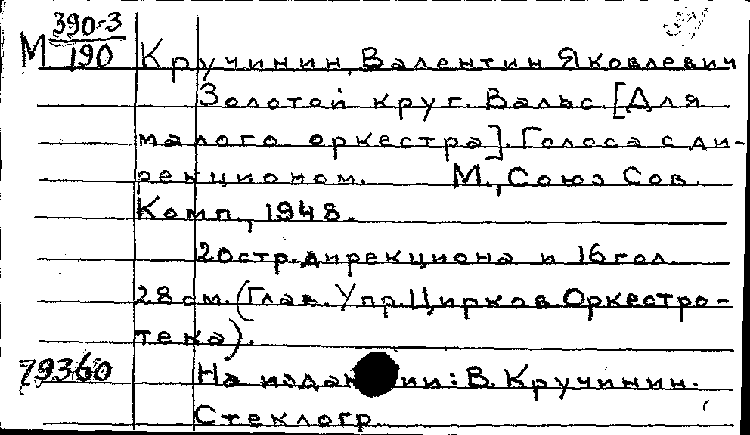 М 390-3/190
Кручинин, Валентин Яковлевич
Золотой круг. Вальс. [Для
малого оркестра]. Голоса с ди-
рекционом. М., Союз Сов.
Комп., 1948.
20стр. дирекциона и 16 гол.
28 см. (Глав. Упр. Цирков. Оркестро-
тека).
79360
На издании: В. Кручинин.
Стеклогр.